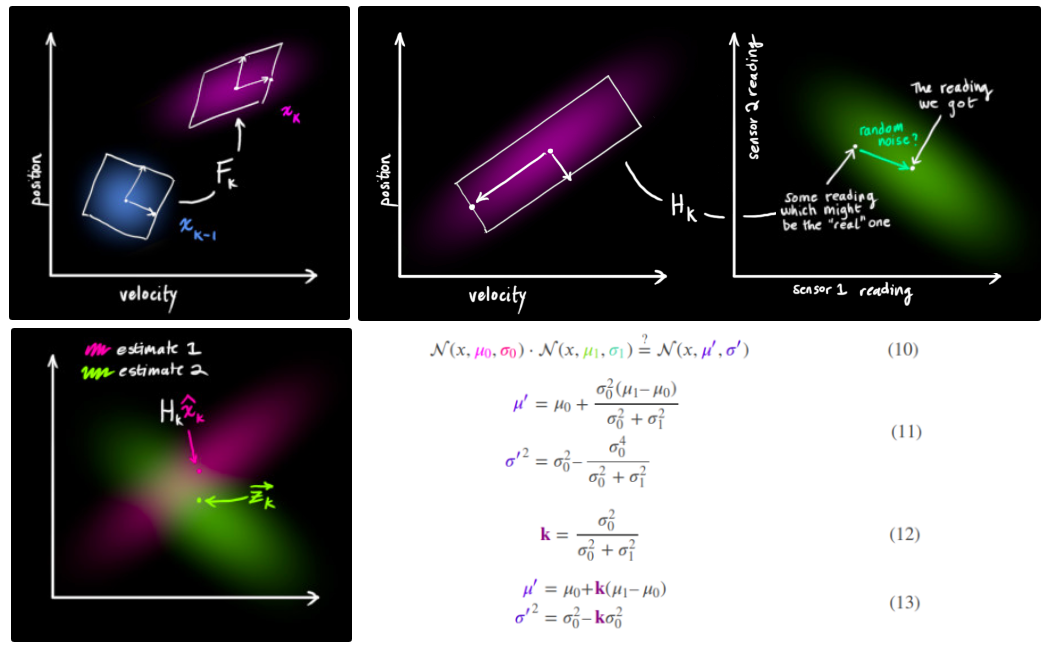 position
velocity
x_k
F_k
x_{k-1}
position
velocity
H_k
sensor 2 reading
sensor 1 reading
The reading
we got
random
noise?
Some reading
which might
be the "real" one
estimate 1
estimate 2
H_k x̂_k
z⃗_k
𝒩(x, μ₀, σ₀) · 𝒩(x, μ₁, σ₁) ≟ 𝒩(x, μ′, σ′) (10)
μ′ = μ₀ + σ₀²(μ₁ − μ₀) / (σ₀² + σ₁²)
σ′² = σ₀² − σ₀⁴ / (σ₀² + σ₁²)
(11)
k = σ₀² / (σ₀² + σ₁²) (12)
μ′ = μ₀ + k(μ₁ − μ₀)
σ′² = σ₀² − kσ₀²
(13)